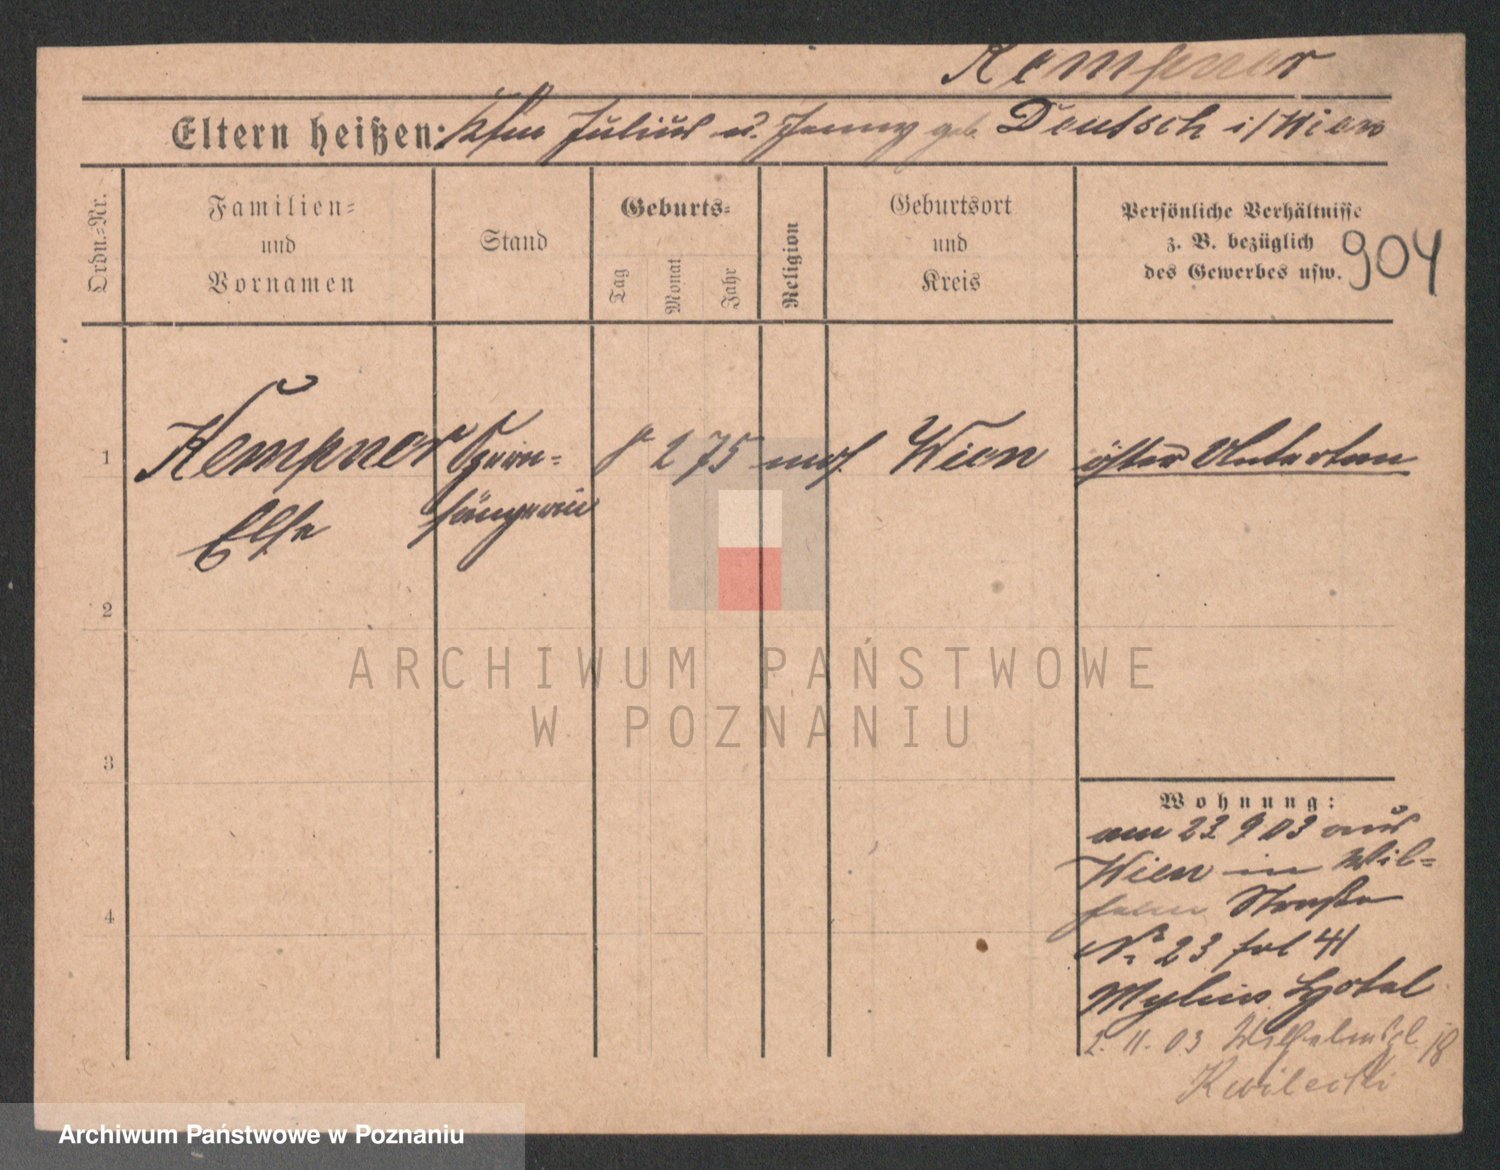 Kempner
Eltern heißen: Kfm Julius u. Jenny geb. Deutsch i/Wien
Ordn.=Nr.
Familien=
und
Vornamen
Stand
Geburts=
Tag
Monat
Jahr
Religion
Geburtsort
und
Kreis
Persönliche Verhältnisse
z. B. bezüglich
des Gewerbes usw.
904
1
Kempner Opern= 8 2 75 mos. Wien öster Untertan
Else sängerin
2
ARCHIWUM PAŃSTWOWE
W POZNANIU
3
Wohnung:
am 23 9 03 aus
Wien in Wil=
helm Straße
No 23 fol 41
Mylius Hotel
2. 11. 03 Wilhelmspl. 18
Kwilecki
4
Archiwum Państwowe w Poznaniu